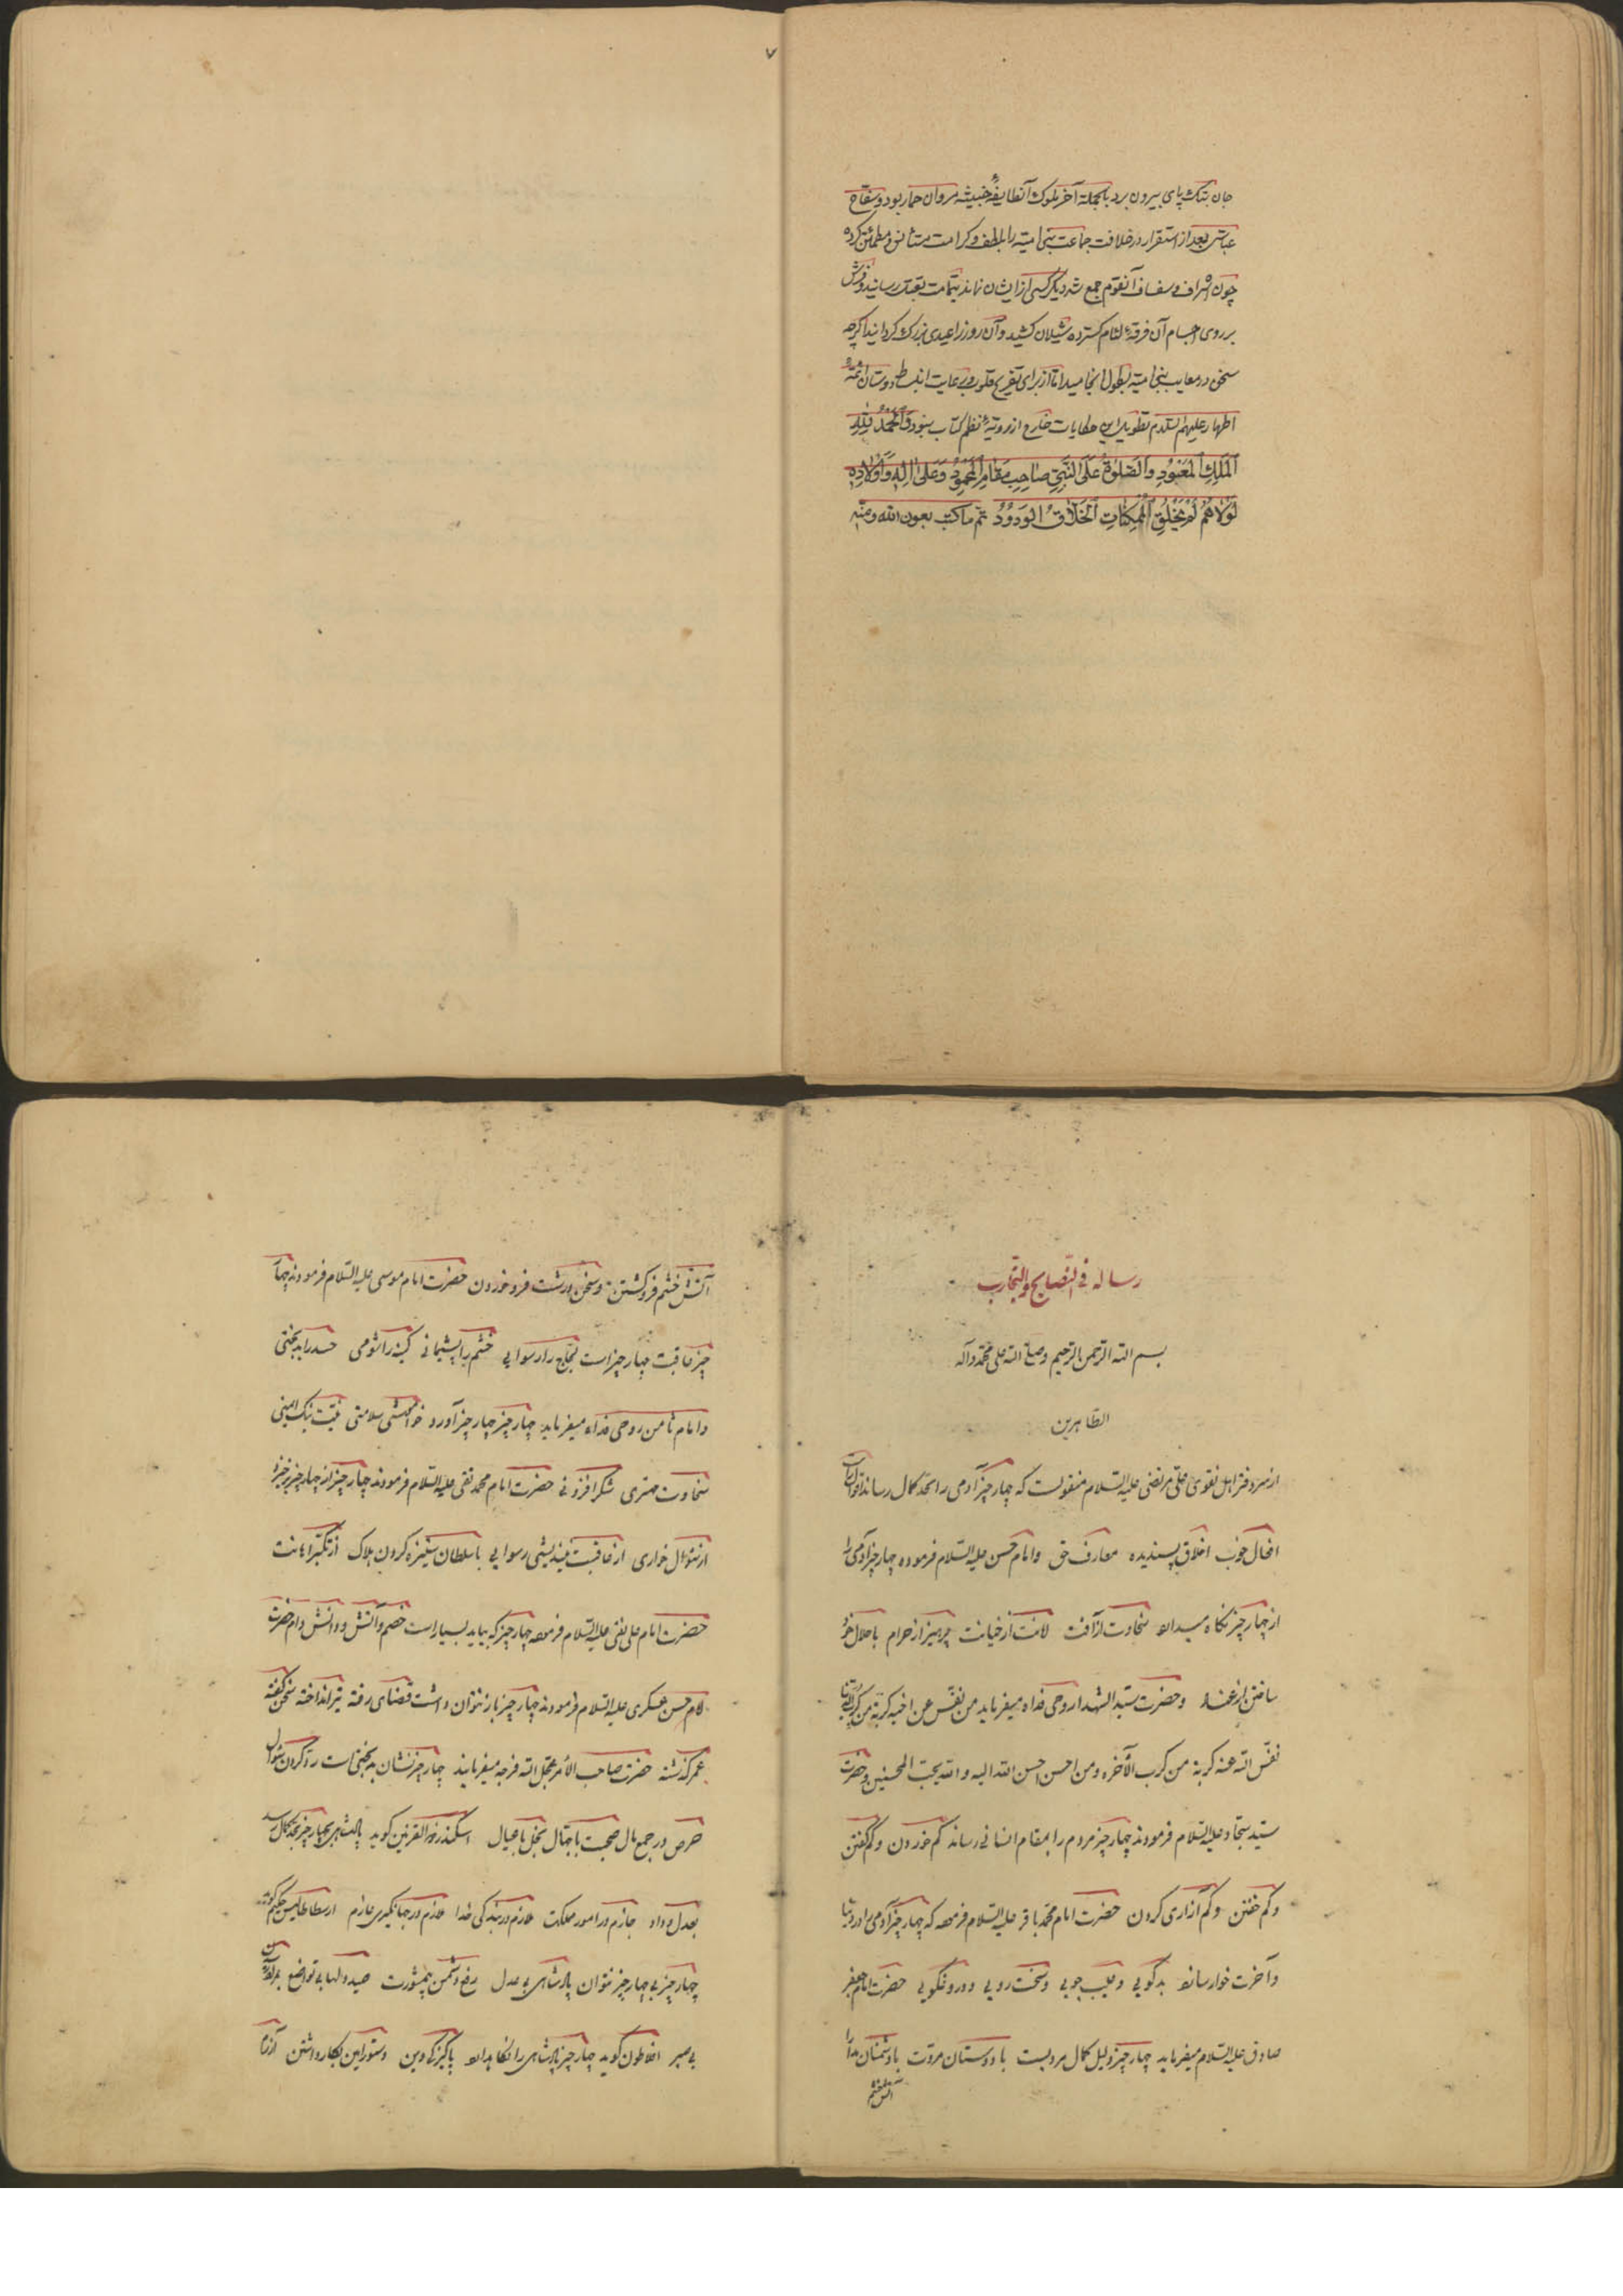 ۷
جان بتک پای بیرون برد بالجمله آخر ملوک آنطایفهٔ خبیثه مروان حمار بود و سفاح
عباسی بعد از استقرار در خلافت جماعت بنی امیه را بلطف و کرامت مستأنس و مطمئن کرده
چون اشراف و سفساف آنقوم جمع شد دیگر کسی از ایشان نماند بتمامت بقتل رسانید و فرش
بر روی اجسام آن فرقهٔ لئام کسترده شیلان کشید و آن روز را عیدی بزرک کردانید اکرچه
سخن در معایب بنی امیه بطول انجامید اما از برای تفریح قلوب و رعایت انبساط دوستان ائمه
اطهار علیهم السلام تطویل این حکایات خارج از رویهٔ نظم کتاب ننمود وَالْحَمْدُ لِلّهِ
اَلْمَلِكِ الْمَعْبُودِ وَالصَّلوٰةُ عَلَى النَّبِيِّ صاحِبِ مَقامِ الْمَحْمُودِ وَعَلىٰ اٰلِهِ وَاَوْلادِهِ
لَوْلاهُمْ لَمْ يَخْلُقِ الْمُمْكِناتِ الْخَلّاقُ الْوَدُودُ تم ما کتب بعون الله و منه
رساله فی النصایح والتجارب
بسم الله الرحمن الرحیم وصلی الله علی محمد وآله
الطاهرین
از سر دفتر اهل تقوی علی مرتضی علیه السلام منقولست که چهار چیز آدمی را بحد کمال رساند اقوال راست
افعال خوب اخلاق پسندیده معارف حق وامام حسن علیه السلام فرموده چهار چیز آدمی را
از چهار چیز نکاه میدارد سخاوت از آفت امانت از خیانت پرهیز از حرام با حلال خود
ساختن از عناد وحضرت سید الشهدا روحی فداه میفرماید من نفّس عن اخیه کربة من کرب الدنیا
نفّس الله عنه کربة من کرب الآخره ومن احسن احسن الله الیه والله یحبّ المحسنین وحضرت
سید سجاد علیه السلام فرمودند چهار چیز مردم را بمقام انسانی رساند کم خوردن وکم کفتن
وکم خفتن وکم آزاری کردن حضرت امام محمد باقر علیه السلام فرموده که چهار چیز آدمی را در دنیا
وآخرت خوار سازد بد کویی وعیب جویی وسخت رویی ودروغکویی حضرت امام جعفر
صادق علیه السلام میفرماید چهار چیز دلیل کمال مردیست با دوستان مروّت با دشمنان مدارا
آتش خشم
آتش خشم فرو کشتن وسخن درشت فرو خوردن حضرت امام موسی علیه السلام فرمودند چهار
چیز عاقبت چهار چیز است لجاج را رسوایی خشم را پشیمانی کینه را شومی حسد را بدبختی
وامام ثامن روحی فداه میفرماید چهار چیز چهار چیز آورد خواهشی سلامتی نیّت نیک ایمنی
سخاوت مهتری شکر افزونی حضرت امام محمد تقی علیه السلام فرمودند چهار چیز از چهار چیز خیزد
از سئوال خواری از عاقبت نیندیشی رسوایی با سلطان ستیزه کردن هلاک از تکبّر اهانت
حضرت امام علی نقی علیه السلام فرموده چهار چیز که بیاید بسیار است خصم وآتش ودانش ودام حضرت
امام حسن عسکری علیه السلام فرمودند چهار چیز باز نتوان داشت قضای رفته تیر انداخته سخن کفته
عمر کذشته حضرت صاحب الأمر عجل الله فرجه میفرمایند چهار چیز نشان بدبختی است ردّ کردن سئوال
حرص در جمع مال صحبت با جهّال بخل با عیال اسکندر ذو القرنین کوید پادشاهی بچهار چیز بحد کمال رسد
بعدل وداد جازم در امور مملکت لازم در بندکی خدا عازم در جهانکیری عازم ارسطاطالیس حکیم کوید
چهار چیز بی چهار چیز نتوان پادشاهی بی عدل رفع دشمن بی مشورت صید دلها بی تواضع بمراد رسیدن
بی صبر افلاطون کوید چهار چیز پادشاهی را نکاه دارد پاکیزکی دین دستور امین بکار داشتن